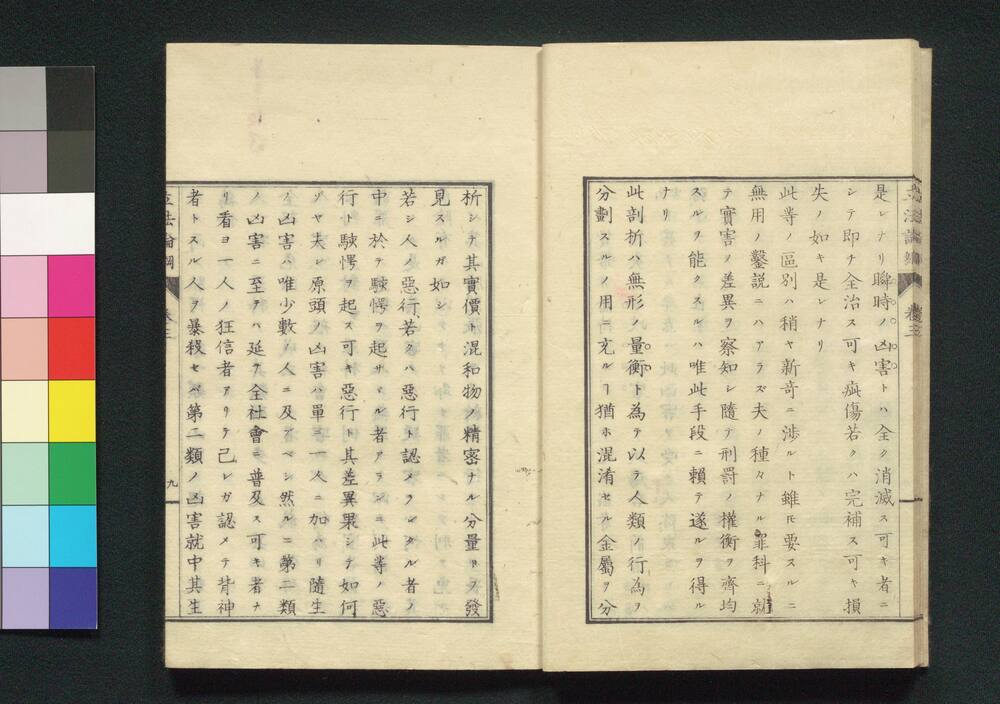 是レナリ瞬時ノ凶害トハ全ク消滅ス可キ者ニ
シテ即チ全治ス可キ疵傷若クハ完補ス可キ損
失ノ如キ是レナリ
此等ノ區別ハ稍ヤ新竒ニ渉ルト雖𪜈要スルニ
無用ノ鑿説ニハアラズ夫ノ種々ナル罪科ニ就
テ實害ノ差異ヲ察知シ隨テ刑罰ノ權衡ヲ齊均
スルヲ能クスルハ唯此手段ニ頼テ遂ルヲ得ル
ナリ
此剖折ハ無形ノ量衡ト為テ以テ人類ノ行為ヲ
分劃スルノ用ニ充ルヿ猶ホ混淆セル金屬ヲ分
析シテ其實價ト混和物ノ精密ナル分量トヲ發
見スルガ如シ
若シ人ノ惡行若クハ惡行ト認メラレタル者ノ
中ニ於テ駭愕ヲ起サヾル者アランニ此等ノ惡
行ト駭愕ヲ起ス可キ惡行ト其差異果シテ如何
ゾヤ夫レ原頭ノ凶害ハ單ニ一人ニ加ハリ隨生
ノ凶害ハ唯少數ノ人ニ及ブベシ然ルニ第二類
ノ凶害ニ至テハ延テ全社會ニ普及ス可キ者ナ
リ看ヨ一人ノ狂信者アリテ己レガ認メテ背神
者トスル人ヲ暴殺セバ第二類ノ凶害就中其生
立法論綱
卷三
九